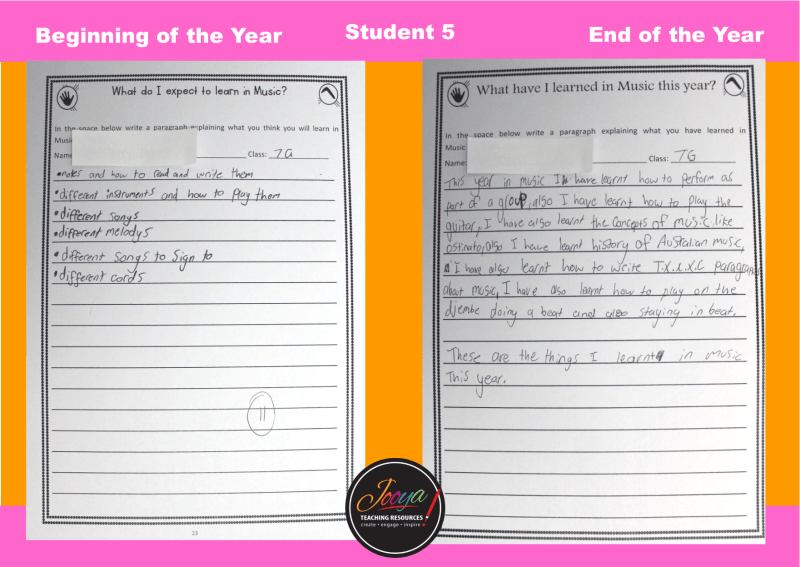 Beginning of the Year
Student 5
End of the Year
What do I expect to learn in Music?
In the space below write a paragraph explaining what you think you will learn in
Music
Name
Class: 7G
•notes and how to read and write them
•different instruments and how to play them
•different songs
•different melodys
•different songs to sign to
•different cords
11
23
What have I learned in Music this year?
In the space below write a paragraph explaining what you have learned in
Music
Name:
Class: 7G
This year in music I have learnt how to perform as
part of a group, also I have learnt how to play the
guitar, I have also learnt the concepts of music like
ostinato, also I have learnt history of Australian music,
I have also learnt how to write T.X.X.X.C paragraphs
about music, I have also learnt how to play on the
djembe doing a beat and also staying in beat.
These are the things I learnt in music
This year.
Jooya!
TEACHING RESOURCES
create • engage • inspire